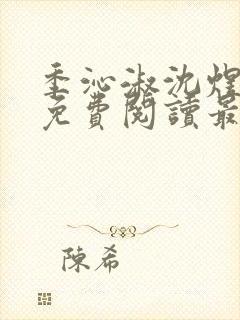 季沁淑沈煜
免費閱讀最
陳希